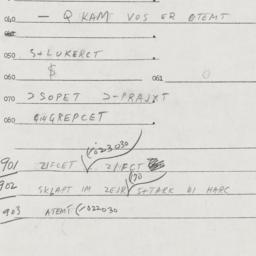 040 — Q KAM VOS ER OTEMT
050 S+LUKERCT
060 $ 061 0
070 JSOPET J-PRAJXT
080 GNGREPCET
901 ZIFCET 2/FCT (√023030
902 SKLAFT IM ZEJR S+TARK DI HARC (70
903 ATEMT (√022030